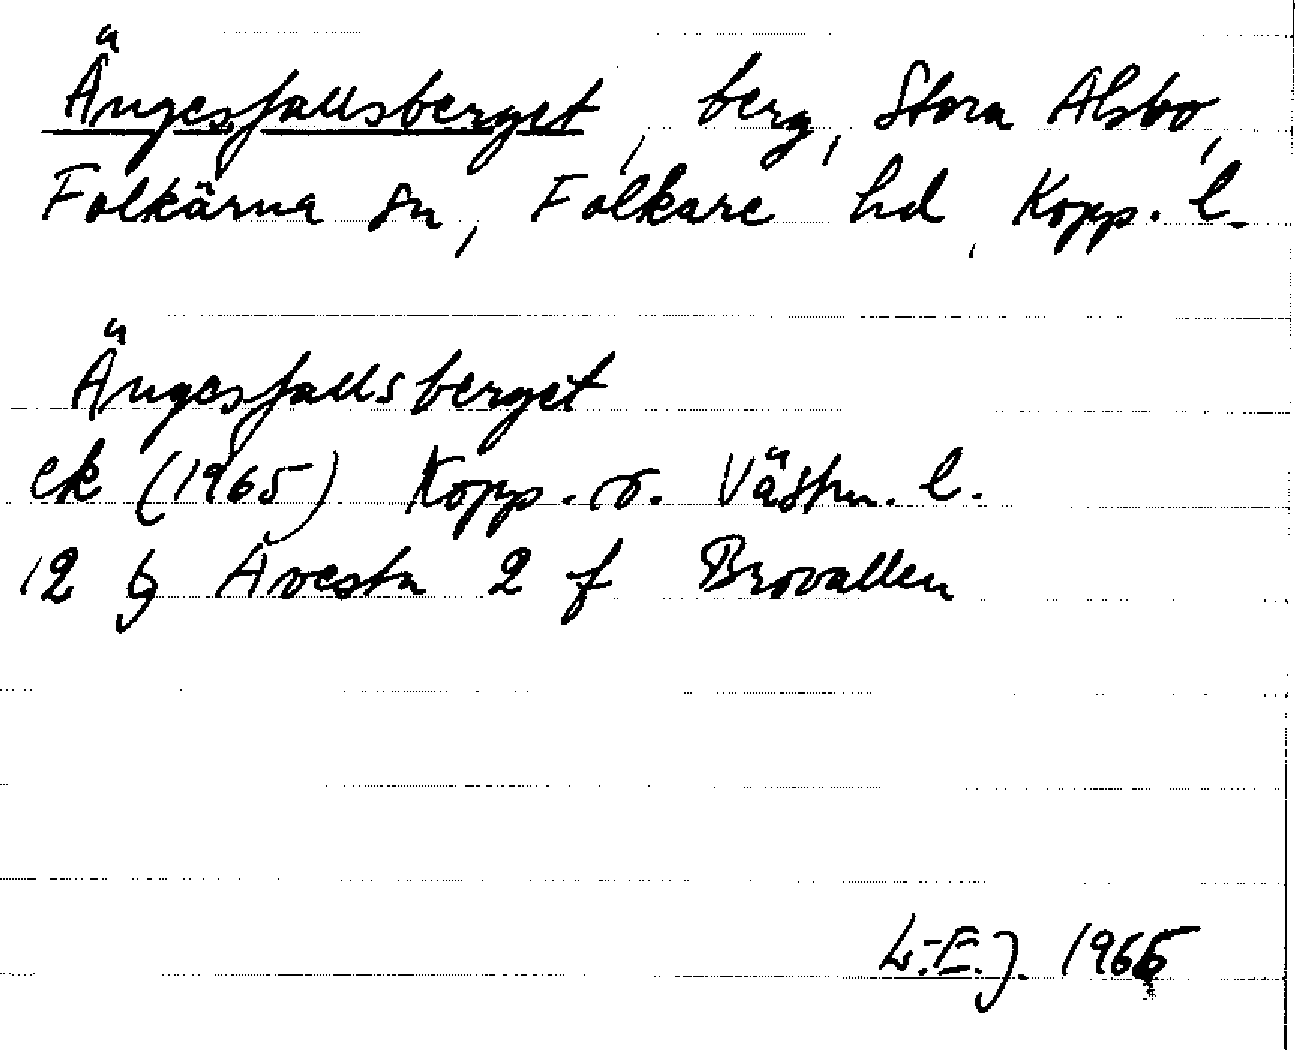 Ängesfallsberget, berg, Stora Alsbo,
Folkärna sn, Folkare hd, Kopp. l.
Ängesfallsberget
ek (1965) Kopp. o. Västm. l.
12 g Avesta 2 f Brovallen
L.-E.J. 1965